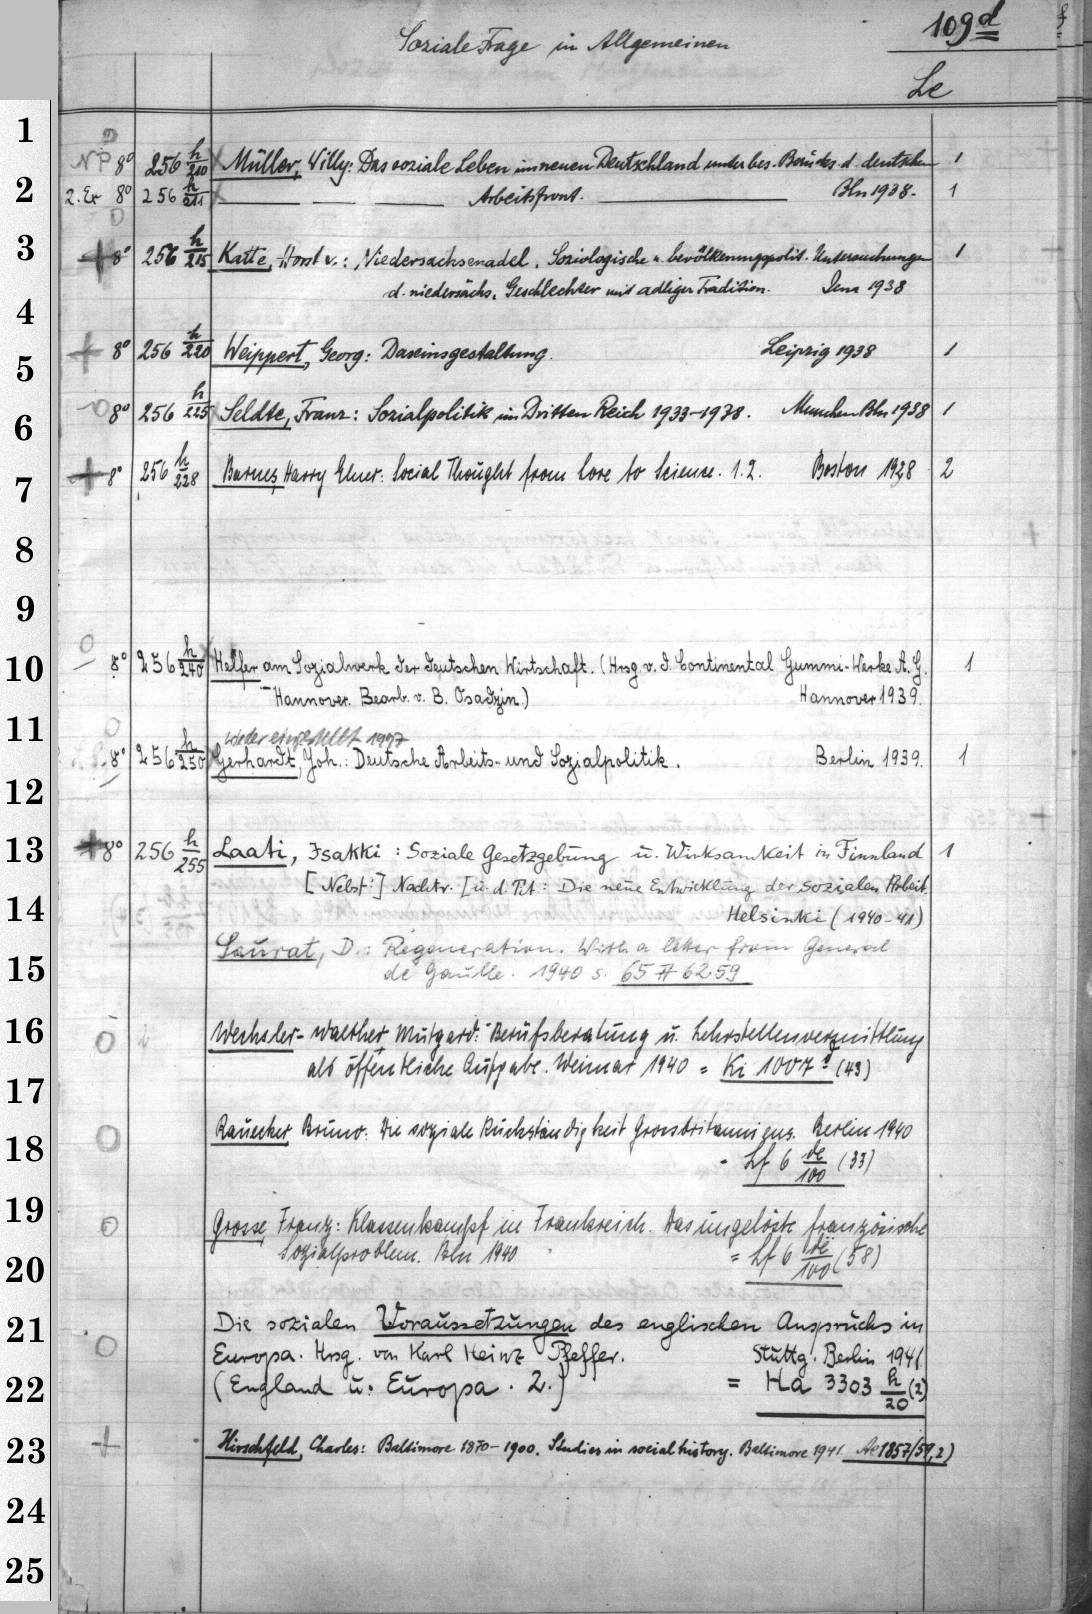 109d
Soziale Frage in Allgemeinen
Le
1
NP 8° 256 h/210 Müller, Willy: Das soziale Leben im neuen Deutschland unter bes. Berücks. d. deutschen 1
2
2. Ex 8° 256 h/211 Arbeitsfront. Bln 1938. 1
3
8° 256 h/215 Katte, Horst v.: Niedersachsenadel. Soziologische u. bevölkerungspolit. Untersuchungen 1
d. niedersächs. Geschlechter mit adliger Tradition. Jena 1938
4
8° 256 h/220 Weippert, Georg: Daseinsgestaltung. Leipzig 1938 1
5
8° 256 h/225 Seldte, Franz: Sozialpolitik im Dritten Reich 1933-1938. München Bln 1938 1
6
8° 256 h/228 Barnes, Harry Elmer: Social Thought from Lore to Science. 1.2. Boston 1928 2
7
8
9
8° 256 h/240 Helfer am Sozialwerk der deutschen Wirtschaft. (Hrsg. v. d. Continental Gummi-Werke A.G. 1
10
Hannover. Bearb. v. B. Osadzin.) Hannover 1939.
11
wieder eingestellt 1997
8° 256 h/250 Gerhardt, Joh.: Deutsche Arbeits- und Sozialpolitik. Berlin 1939. 1
12
13
8° 256 h/255 Laati, Isakki: Soziale Gesetzgebung u. Wirksamkeit in Finnland 1
[Nebst:] Nachtr. [u. d. Tit: Die neue Entwicklung der sozialen Arbeit.
14
Helsinki (1940-41)
Saurat, D.: Regeneration. With a letter from General
15
de Gaulle. 1940 s. 65 A 6259
16
Wechsler- Walther, Mutgard: Berufsberatung u. Lehrstellenvermittlung
als öffentliche Aufgabe. Weimar 1940 = Ki 1007 (43)
17
Rauecker Bruno: Die soziale Rückständigkeit Grossbritanniens. Berlin 1940
18
= Lf 6 de/100 (33)
19
Grosse, Franz: Klassenkampf in Frankreich. Das ungelöste französische
Sozialproblem. Bln 1940 = Lf 6 de/100 (58)
20
21
Die sozialen Voraussetzungen des englischen Anspruchs in
Europa. Hrsg. von Karl Heinz Pfeffer. Stuttg. Berlin 1941.
22
(England u. Europa. 2.) = Ha 3303 h/20 (2)
23
Hirschfeld, Charles: Baltimore 1870-1900. Studies in social history. Baltimore 1941. Ae 1857/59,2)
24
25